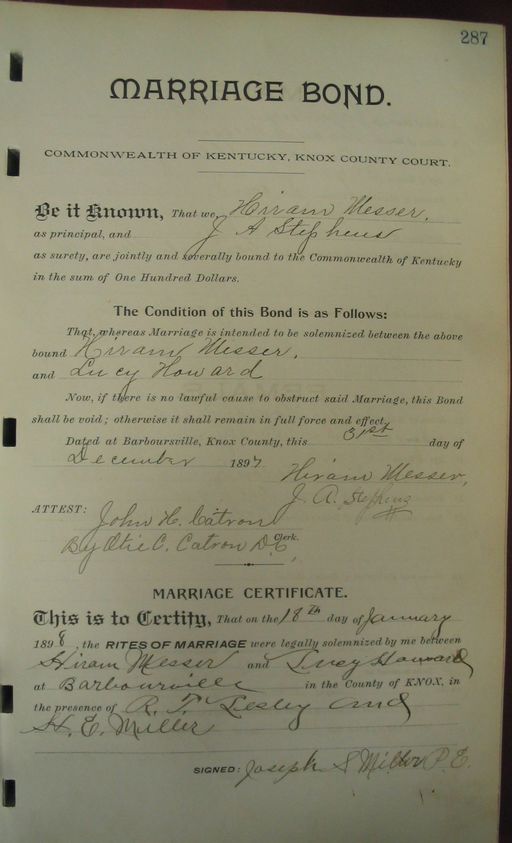 287
MARRIAGE BOND.
COMMONWEALTH OF KENTUCKY, KNOX COUNTY COURT.
Be it Known, That we, Hiram Messer,
as principal, and J A Stephens
as surety, are jointly and severally bound to the Commonwealth of Kentucky
in the sum of One Hundred Dollars.
The Condition of this Bond is as Follows:
That, whereas Marriage is intended to be solemnized between the above
bound Hiram Messer,
and Lucy Howard
Now, if there is no lawful cause to obstruct said Marriage, this Bond
shall be void; otherwise it shall remain in full force and effect.
Dated at Barboursville, Knox County, this 31st day of
December 1897
Hiram Messer,
J. A. Stephens
ATTEST: John H. Catron
Clerk.
By Otie C. Catron D.C.
MARRIAGE CERTIFICATE.
This is to Certify, That on the 18th day of January
1898, the RITES OF MARRIAGE were legally solemnized by me between
Hiram Messer and Lucy Howard
at Barbourville in the County of KNOX, in
the presence of R. T. Lesley and
H. E. Miller
SIGNED: Joseph S Miller P. E.